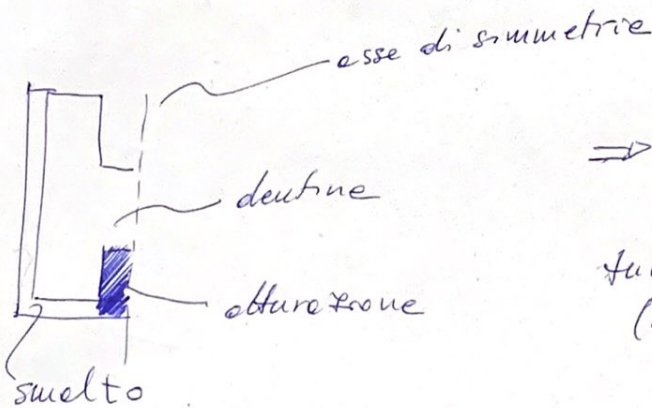 asse di simmetria
⇒
dentina
otturazione
(
smalto